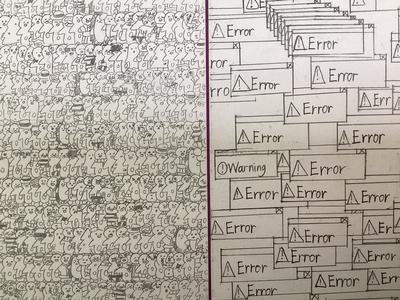 Error
Error
Error
Error
rro
Error
Err
Error
Error
Error
Warning
Error
Error
Error
Error
Error
Error
Er
Error
Error
Error
Error
Error
Error